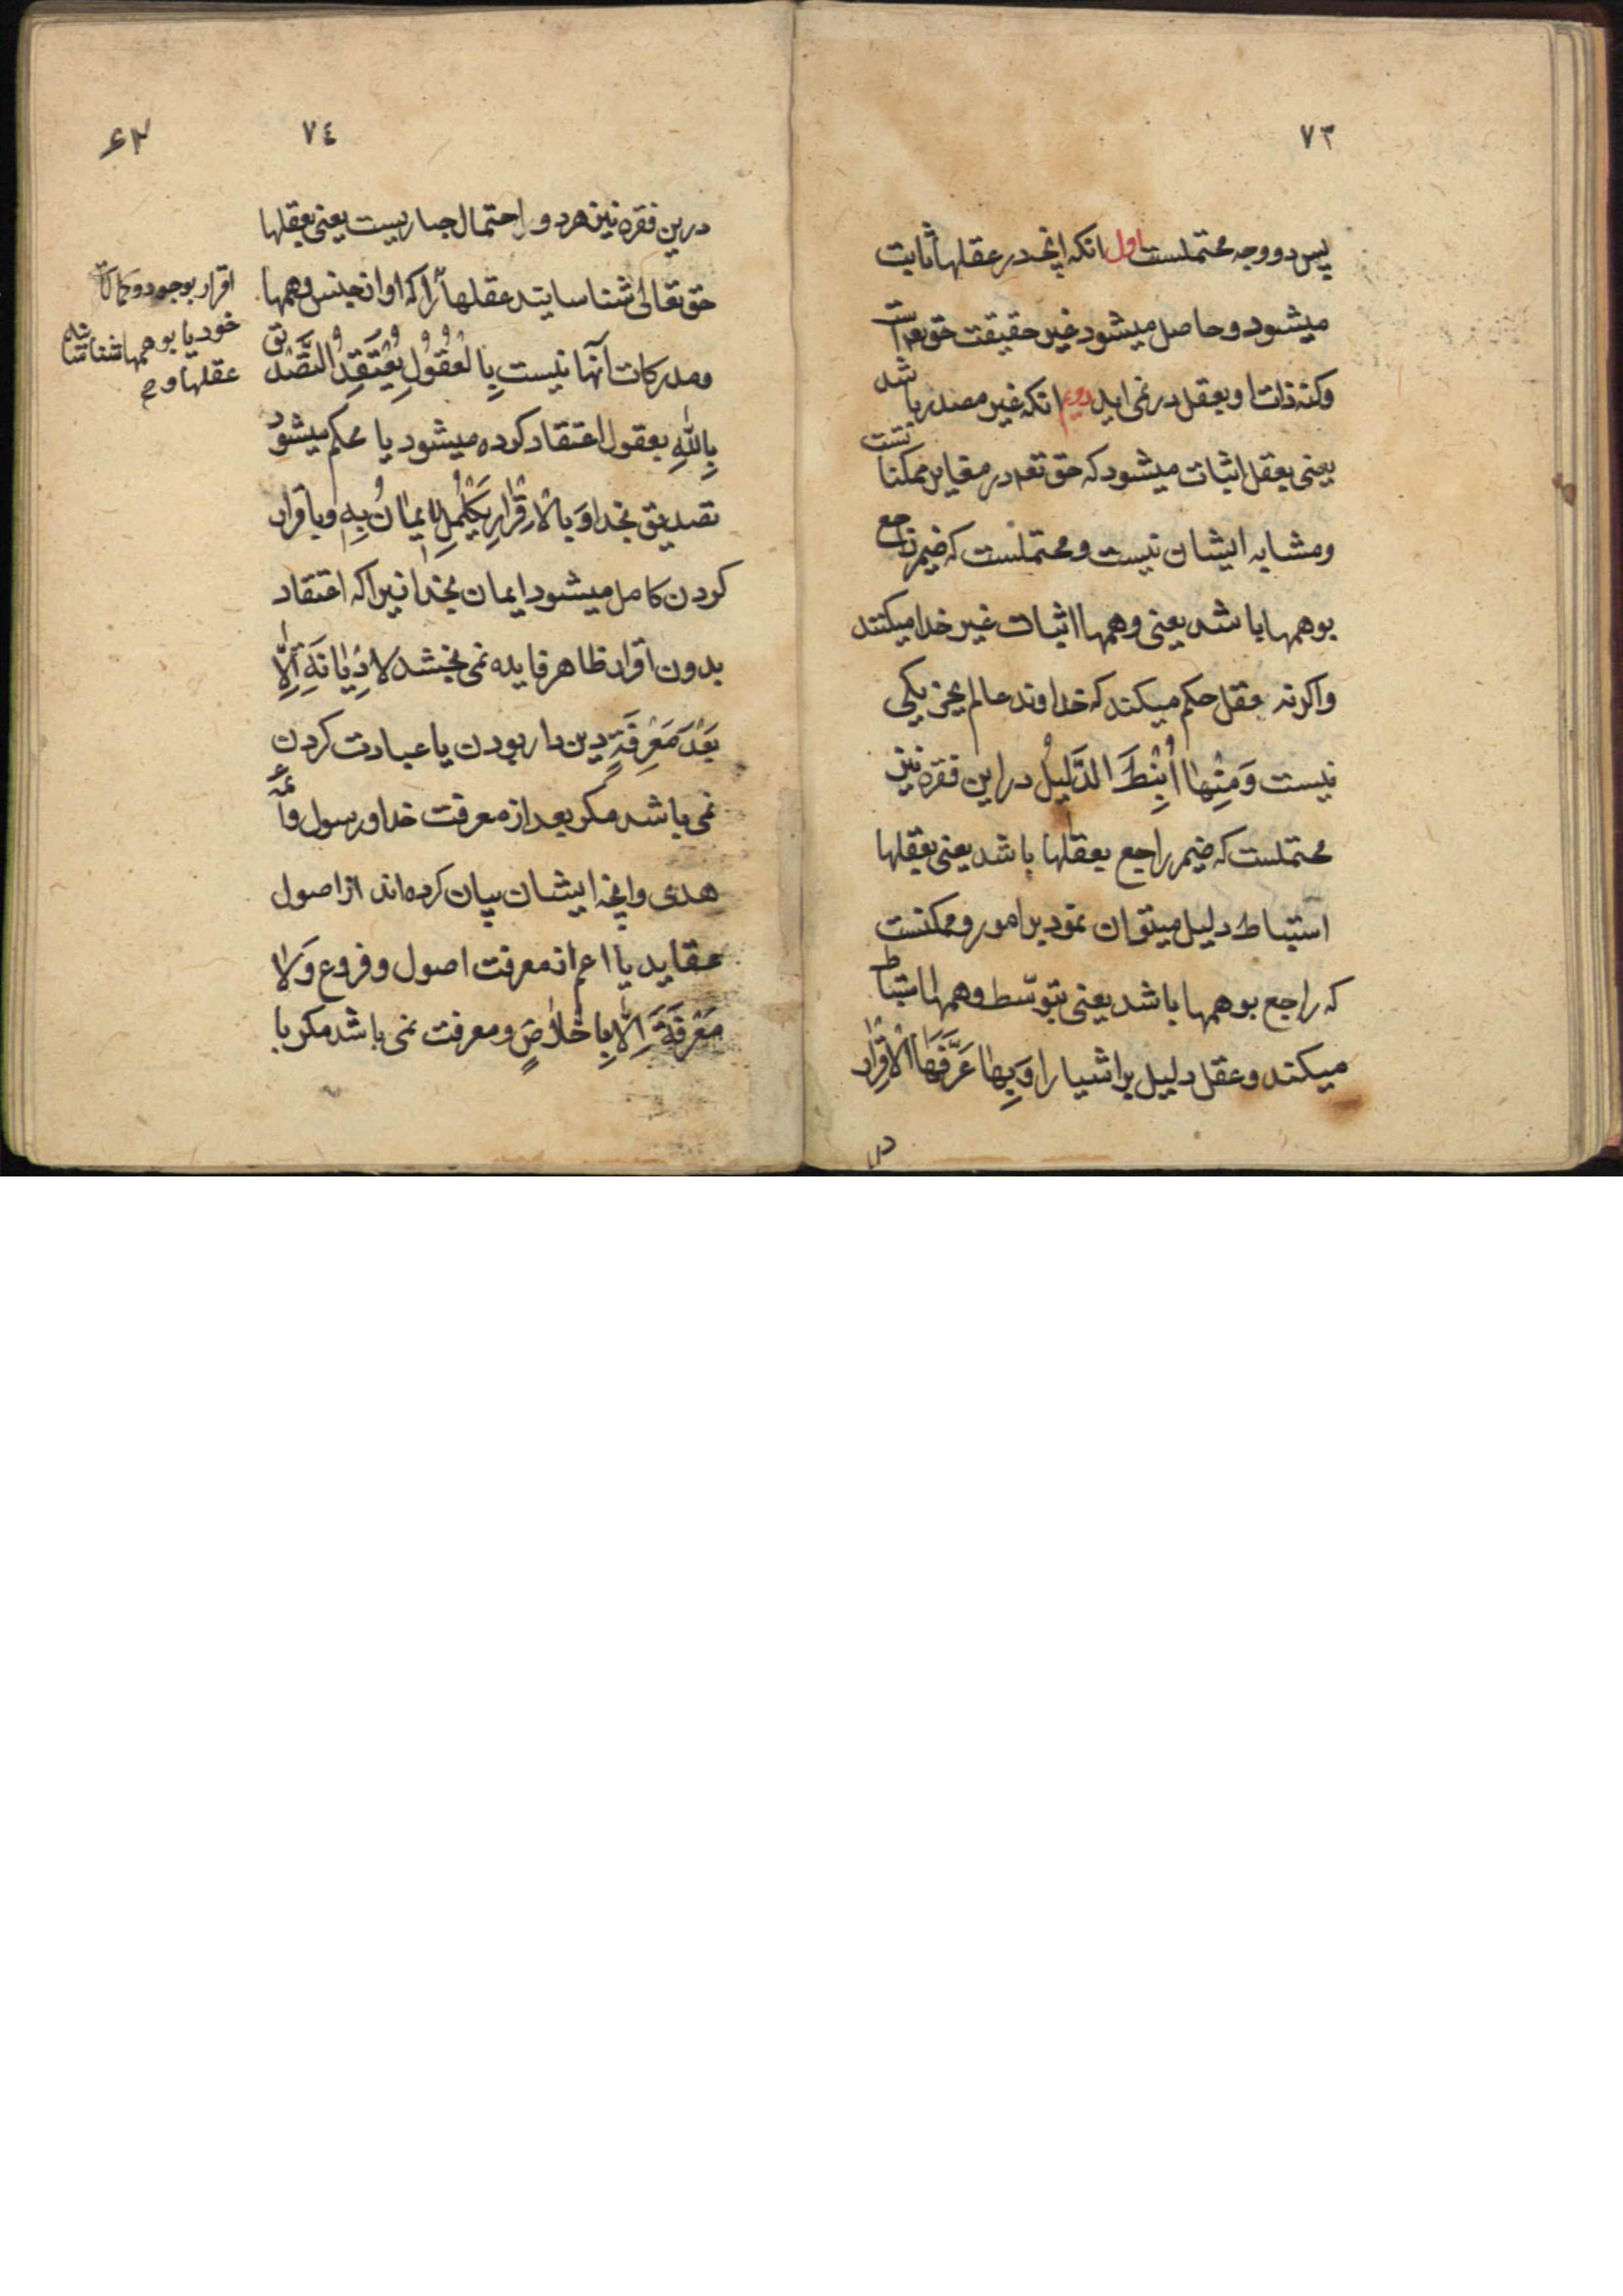 ٧٣
پس دو وجه محتملست اول انکه انچه در عقلها ثابت
میشود و حاصل میشود غیر حقیقت حق تعم است
و کنه ذات او بعقل در نمی اید دویم انکه غیر مصدر باشد
یعنی بعقل اثبات میشود که حق تعم در مغایر ممکنا تست
و مشابه ایشان نیست و محتملست که ضیمر راجع
بوهمها باشد یعنی وهمها اثبات غیر خدا میکنند
واکرنه عقل حکم میکند که خداوند عالم بجز یکی
نیست وَمِنْهٰا اُنْبِطَ الدَّلیٖلُ در این فقره نیز
محتملست که ضیمر راجع بعقلها باشد یعنی بعقلها
استنباط دلیل میتوان نمود بر امور و ممکنست
که راجع بوهمها باشد یعنی بتوسّط وهمها استنباط
میکند و عقل دلیل بر اشیا را وَبِهٰا عَرَّفَهَا الْاِقْرٰارَ
در
٧٤
درین فقره نیز هر دو احتمال جاریست یعنی بعقلها
حق تعالی شناسایند عقلها را که او از جنس وهمها
ومدرکات آنها نیست بِالْعُقُولِ یُعْتَقَدُ التَّصْدیقُ
بِاللّٰهِ بعقول اعتقاد کرده میشود یا محکم میشود
تصدیق بخدا وَبِالْاِقْرٰارِ یَکْمُلُ الْایمٰانُ بِهِ وباقرار
کردن کامل میشود ایمان بخدا زیرا که اعتقاد
بدون اقرار ظاهر فایده نمی بخشد لا دِیٰانَةَ اِلّٰا
بَعْدَ مَعْرِفَةٍ دین دار بودن یا عبادت کردن
نمی باشد مکر بعد از معرفت خدا و رسول وائمّه
هدی وانچه ایشان بیان کرده اند از اصول
عقاید یا اعم از معرفت اصول و فروع وَلا
مَعْرِفَةَ اِلّٰا بِاِخْلٰاصٍ ومعرفت نمی باشد مکر با
اقرار بوجود و کمالات
خود یا بوهمها شناسانید
عقلها را صح